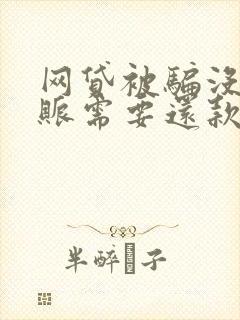 网贷被骗没
赈需要还款
半醉 子